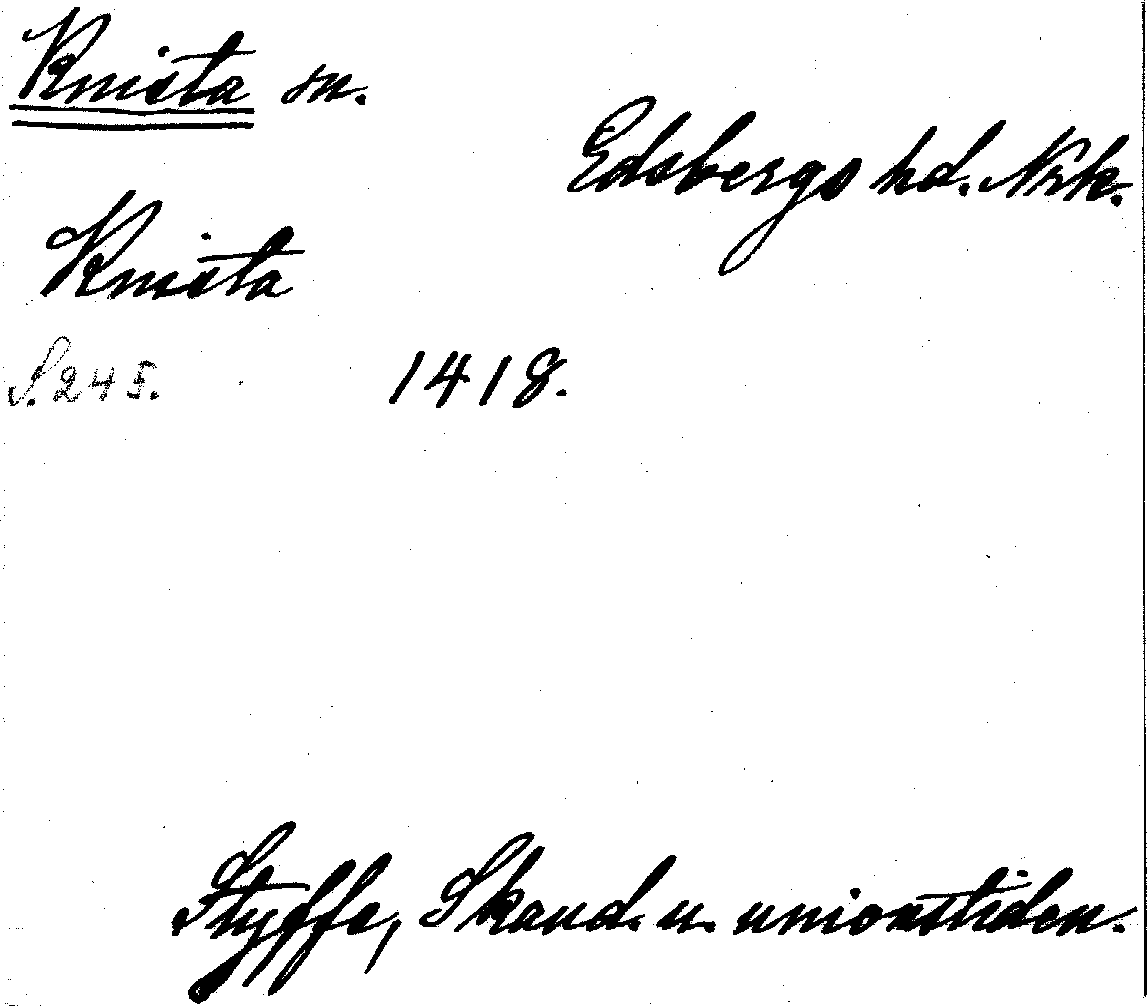 Knista sn.
Edsbergs hd. Nrk.
Knista
S. 245. 1418.
Styffe, Skand. u. unionstiden.